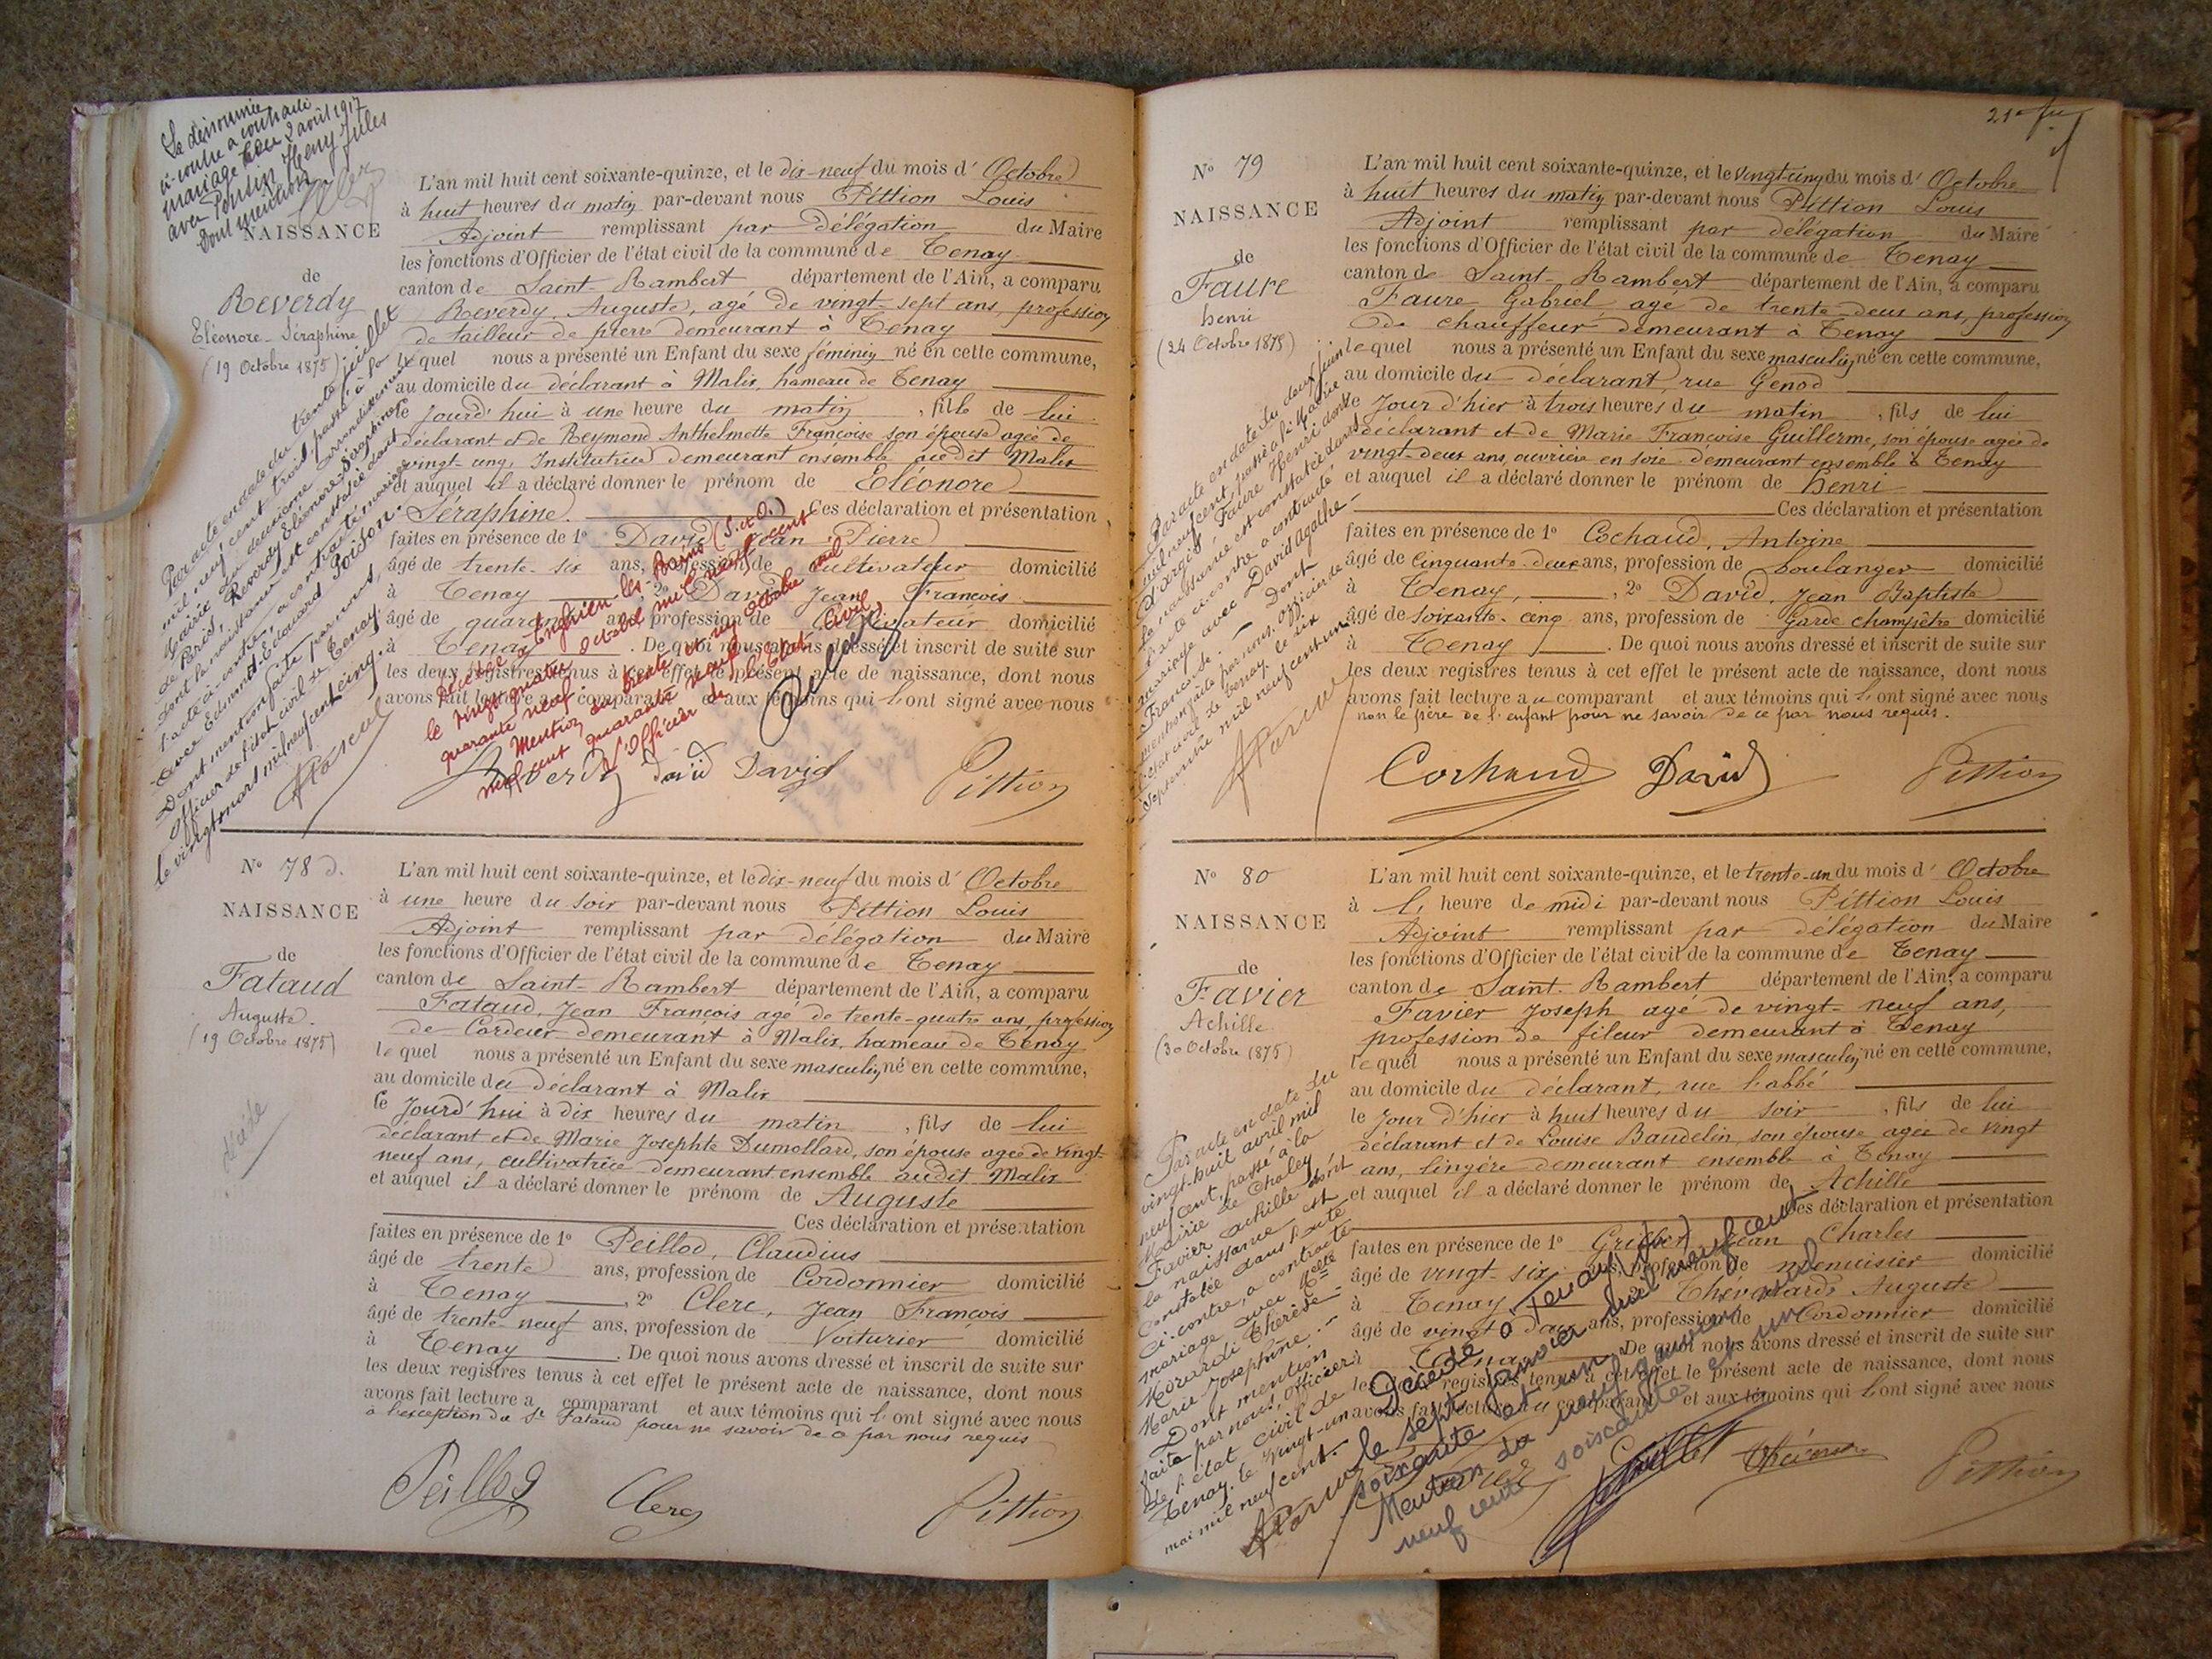 La dénommée
ci-contre a contracté
mariage le 2 août 1917
avec Ponsin Henry Jules
Dont mention
NAISSANCE
de
Reverdy
Eléonore-Séraphine
(19 Octobre 1875)
Par acte en date du trente juillet
mil neuf cent trois, passé à la
Mairie du deuxième arrondissement
de Paris, Reverdy Eléonore Séraphine
dont la naissance est constatée dans
l'acte ci-contre, a contracté mariage
avec Edmond-Edouard Poison.
Dont mention faite par nous,
officier de l'état civil de Tenay,
le vingt mars mil neuf cent cinq.
L'an mil huit cent soixante-quinze, et le dix-neuf du mois d'Octobre
à huit heures du matin par-devant nous Pittion Louis
Adjoint remplissant par délégation du Maire
les fonctions d'Officier de l'état civil de la commune de Tenay
canton de Saint-Rambert département de l'Ain, a comparu
Reverdy, Auguste, agé de vingt-sept ans, profession
de tailleur de pierre demeurant à Tenay
lequel nous a présenté un Enfant du sexe féminin né en cette commune,
au domicile du déclarant à Malix, hameau de Tenay
le jourd'hui à une heure du matin, fille de lui
déclarant et de Reymond Anthelmette Françoise son épouse agée de
vingt-cinq, Institutrice demeurant ensemble audit Malix
et auquel il a déclaré donner le prénom de Eléonore
Séraphine. Ces déclaration et présentation
faites en présence de 1° David Jean Pierre
âgé de trente-six ans, profession de Cultivateur domicilié
à Tenay, 2° David Jean François
âgé de quarante ans, profession de Cultivateur domicilié
à Tenay. De quoi nous avons dressé et inscrit de suite sur
les deux registres tenus à cet effet le présent acte de naissance, dont nous
avons fait lecture au comparant et aux témoins qui l'ont signé avec nous
Décédée à Enghien les Bains (S. et O.)
le vingt quatre octobre mil neuf cent
quarante neuf.
Mention du trente et un octobre mil
neuf cent quarante neuf.
L'Officier de l'Etat Civil,
Reverdy David David Pittion
N° 78 D.
NAISSANCE
de
Fataud
Auguste
(19 Octobre 1875)
L'an mil huit cent soixante-quinze, et le dix-neuf du mois d'Octobre
à une heure du soir par-devant nous Pittion Louis
Adjoint remplissant par délégation du Maire
les fonctions d'Officier de l'état civil de la commune de Tenay
canton de Saint-Rambert département de l'Ain, a comparu
Fataud, Jean François agé de trente-quatre ans, profession
de Cardeur demeurant à Malix, hameau de Tenay
lequel nous a présenté un Enfant du sexe masculin né en cette commune,
au domicile du déclarant à Malix
le jourd'hui à dix heures du matin, fils de lui
déclarant et de Marie Josephte Dumollard, son épouse agée de vingt
neuf ans, cultivatrice demeurant ensemble audit Malix
et auquel il a déclaré donner le prénom de Auguste
Ces déclaration et présentation
faites en présence de 1° Peillod, Claudius
âgé de trente ans, profession de Cordonnier domicilié
à Tenay, 2° Clerc, Jean François
âgé de trente-neuf ans, profession de Voiturier domicilié
à Tenay. De quoi nous avons dressé et inscrit de suite sur
les deux registres tenus à cet effet le présent acte de naissance, dont nous
avons fait lecture a comparant et aux témoins qui l'ont signé avec nous
à l'exception du Sr Fataud pour ne savoir de a par nous requis
Peillod Clerc Pittion
N° 79
NAISSANCE
de
Faure
henri
(24 Octobre 1875)
Par acte en date du deux juin
mil neuf cent, passé à la Mairie
d'Argis, Faure Henri dont
la naissance est constatée dans
l'acte ci-contre a contracté
mariage avec David Agathe
Françoise. Dont
mention faite par nous, officier de
l'état civil de Tenay, le dix
septembre mil neuf cent un.
L'an mil huit cent soixante-quinze, et le vingt cinq du mois d'Octobre
à huit heures du matin par-devant nous Pittion Louis
Adjoint remplissant par délégation du Maire
les fonctions d'Officier de l'état civil de la commune de Tenay
canton de Saint-Rambert département de l'Ain, a comparu
Faure Gabriel agé de trente-deux ans, profession
de chauffeur demeurant à Tenay
lequel nous a présenté un Enfant du sexe masculin né en cette commune,
au domicile du déclarant, rue Genod
le jour d'hier à trois heures du matin, fils de lui
déclarant et de Marie Françoise Guillerme, son épouse agée de
vingt-deux ans, ouvrière en soie demeurant ensemble à Tenay
et auquel il a déclaré donner le prénom de henri
Ces déclaration et présentation
faites en présence de 1° Cochaud, Antoine
âgé de Cinquante-deux ans, profession de boulanger domicilié
à Tenay, 2° David, Jean Baptiste
âgé de soixante-cinq ans, profession de Garde champêtre domicilié
à Tenay. De quoi nous avons dressé et inscrit de suite sur
les deux registres tenus à cet effet le présent acte de naissance, dont nous
avons fait lecture au comparant et aux témoins qui l'ont signé avec nous
non le père de l'enfant pour ne savoir de ce par nous requis.
Cochaud David Pittion
N° 80
NAISSANCE
de
Favier
Achille
(30 Octobre 1875)
Par acte en date du
vingt-huit avril mil
neuf cent, passé à la
Mairie de Chaley
Favier Achille dont
la naissance est
constatée dans l'acte
ci-contre, a contracté
mariage avec Melle
Morardi Thérèse
Marie Josephine.
Dont mention
faite par nous, officier
de l'état civil de
Tenay, le vingt-un
mai mil neuf cent.
L'an mil huit cent soixante-quinze, et le trente-un du mois d'Octobre
à l' heure de midi par-devant nous Pittion Louis
Adjoint remplissant par délégation du Maire
les fonctions d'Officier de l'état civil de la commune de Tenay
canton de Saint-Rambert département de l'Ain, a comparu
Favier Joseph agé de vingt-neuf ans,
profession de fileur demeurant à Tenay
lequel nous a présenté un Enfant du sexe masculin né en cette commune,
au domicile du déclarant, rue l'abbé
le jour d'hier à huit heures du soir, fils de lui
déclarant et de Louise Baudelin, son épouse agée de vingt
ans, lingère demeurant ensemble à Tenay
et auquel il a déclaré donner le prénom de Achille
Ces déclaration et présentation
faites en présence de 1° Jean Charles
âgé de vingt-six ans, profession de menuisier domicilié
à Tenay, Auguste
âgé de vingt-deux ans, profession de Cordonnier domicilié
à Tenay. De quoi nous avons dressé et inscrit de suite sur
les deux registres tenus à cet effet le présent acte de naissance, dont nous
avons fait lecture au comparant et aux témoins qui l'ont signé avec nous
Décédé à Tenay (Ain)
le sept janvier mil neuf cent
soixante et un
Mention du neuf janvier mil
neuf cent soixante et un
Pittion